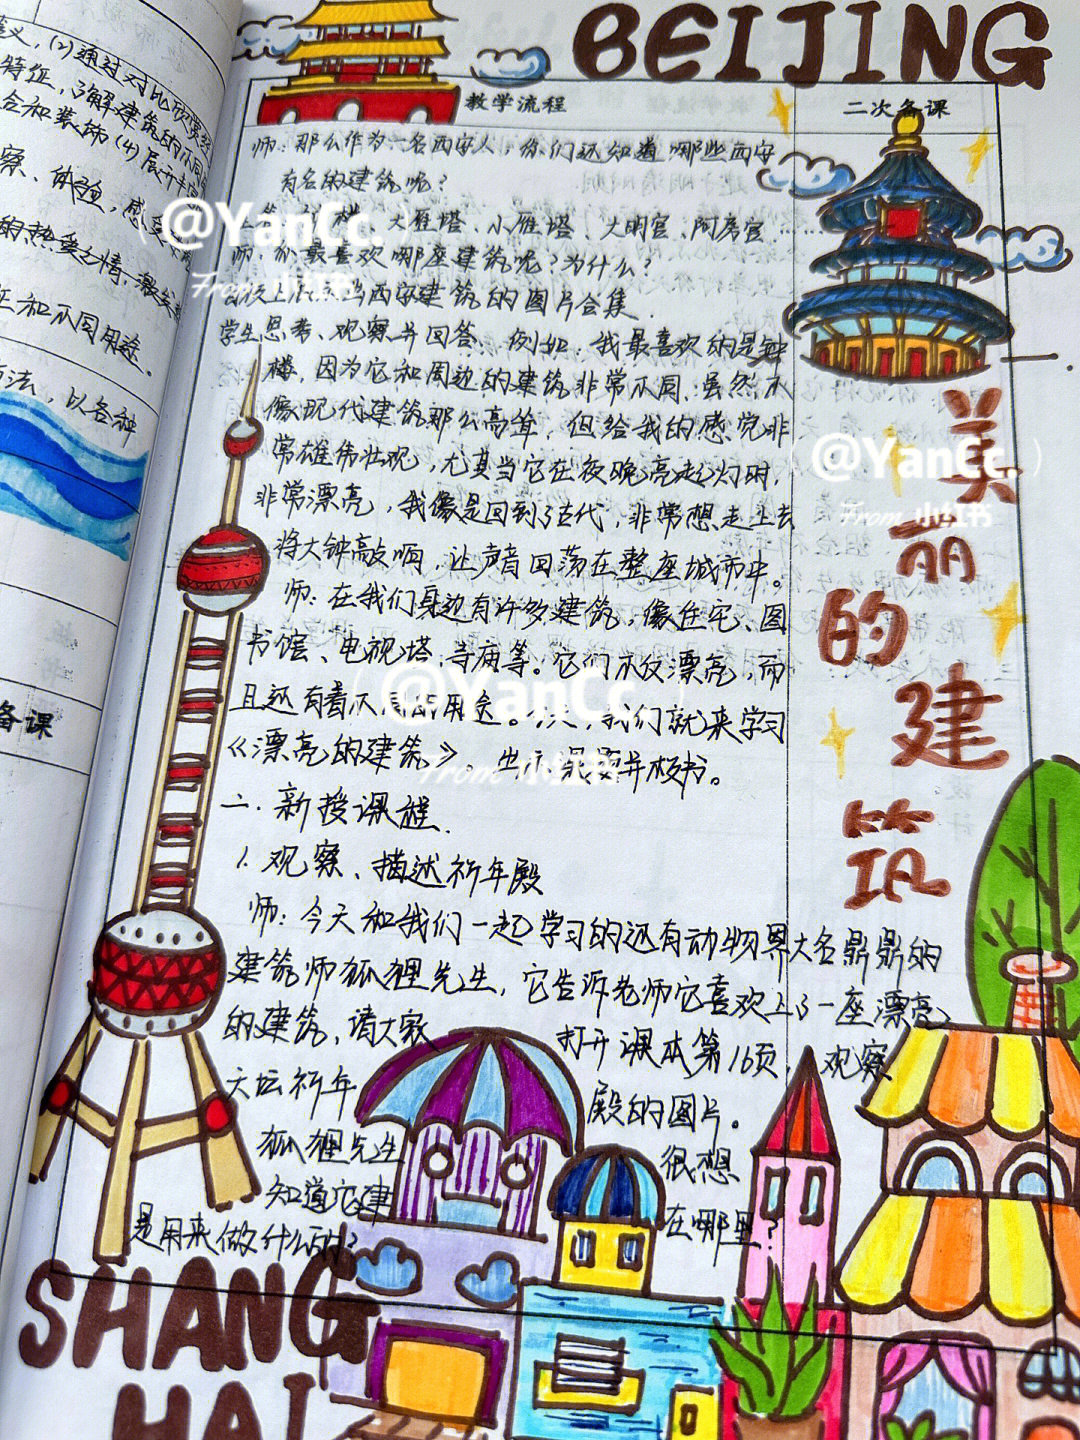 BEIJING
教学流程
二次备课
义,(2)通过对比欣赏
特征,了解建筑的不同
合和装饰(4)展开
察、体验,感
的热爱之情,激发
征和不同用途。
方法,以各种
备课
师:那么作为一名西安人,你们还知道哪些西安
有名的建筑呢?
楼、大雁塔、小雁塔、大明宫、阿房宫……
师:你最喜欢哪座建筑呢?为什么?
西安建筑的图片合集
学生思考、观察并回答。例如:我最喜欢的是钟
楼,因为它和周边的建筑非常不同,虽然不
像现代建筑那么高耸,但给我的感觉非
常雄伟壮观,尤其当它在夜晚亮起灯时,
非常漂亮,我像是回到了古代,非常想走上去
将大钟敲响,让声音回荡在整座城市中。
师:在我们身边有许多建筑,像住宅、图
书馆、电视塔、寺庙等。它们不仅漂亮,而
且还有着不同的用途。今天,我们就来学习
《漂亮的建筑》。出示课题并板书。
二.新授课程.
1.观察、描述祈年殿
师:今天和我们一起学习的还有动物界大名鼎鼎的
建筑师狐狸先生,它告诉老师它喜欢上了一座漂亮
的建筑,请大家 打开课本第16页,观察
天坛祈年 殿的图片。
狐狸先生 很想
知道它建 在哪里?
是用来做什么的?
美丽的建筑
SHANG
HAI
@YanCc.
From 小红书
@YanCc.
From 小红书
@YanCc.
From 小红书